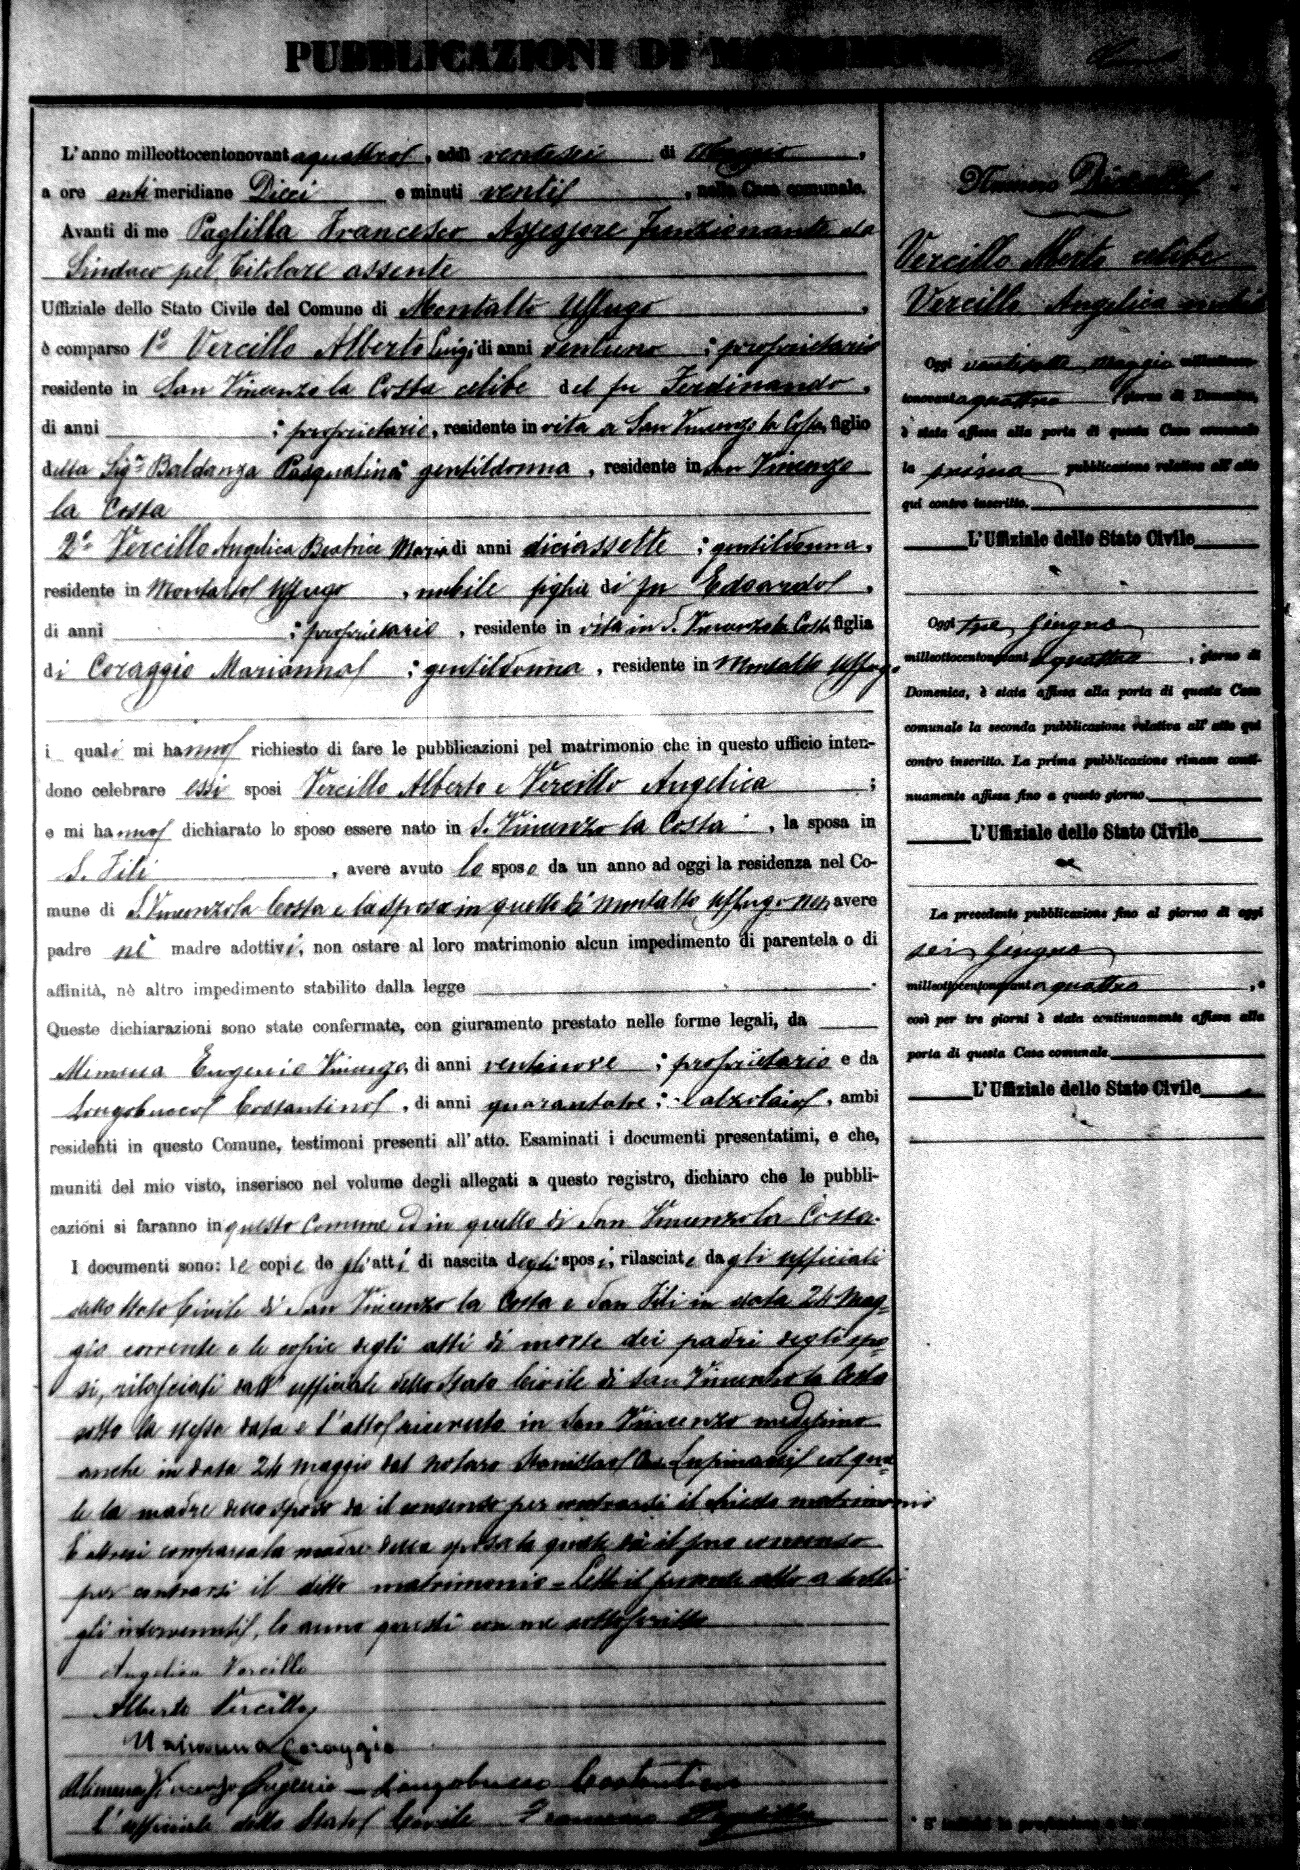 PUBBLICAZIONI DI MATRIMONIO
L'anno milleottocentonovantaquattro, addì ventesei di Maggio,
a ore antimeridiane Dieci e minuti venti, nella Casa comunale.
Avanti di me Paglilla Francesco Assessore funzionante da
Sindaco pel titolare assente
Uffiziale dello Stato Civile del Comune di Montalto Uffugo,
è comparso 1º Vercillo Alberto Luigi di anni ventuno; proprietario
residente in San Vincenzo la Costa celibe del fu Ferdinando,
di anni ; proprietario, residente in vita a San Vincenzo la Costa figlio
della Sigra Baldanza Pasqualina; gentildonna, residente in San Vincenzo
la Costa
2º Vercillo Angelica Beatrice Maria di anni diciassette; gentildonna,
residente in Montalto Uffugo, nubile figlia di fu Edoardo,
di anni ; proprietario, residente in vita in S. Vincenzo la Costa figlia
di Coraggio Marianna; gentildonna, residente in Montalto Uffugo
i quali mi hanno richiesto di fare le pubblicazioni pel matrimonio che in questo ufficio inten-
dono celebrare essi sposi Vercillo Alberto e Vercillo Angelica;
e mi hanno dichiarato lo sposo essere nato in S. Vincenzo la Costa, la sposa in
S. Fili, avere avuto lo sposo da un anno ad oggi la residenza nel Co-
mune di S. Vincenzo la Costa e la sposa in quello di Montalto Uffugo non avere
padre nè madre adottivi, non ostare al loro matrimonio alcun impedimento di parentela o di
affinità, nè altro impedimento stabilito dalla legge
Queste dichiarazioni sono state confermate, con giuramento prestato nelle forme legali, da
Eugenio Vincenzo, di anni ventinove; proprietario e da
Longobucco Costantino, di anni ; calzolaio, ambi
residenti in questo Comune, testimoni presenti all'atto. Esaminati i documenti presentatimi, e che,
muniti del mio visto, inserisco nel volume degli allegati a questo registro, dichiaro che le pubbli-
cazioni si faranno in questo Comune ed in quello di San Vincenzo la Costa.
I documenti sono: le copie de gli atti di nascita degli sposi, rilasciate dagli ufficiali
dello Stato Civile di San Vincenzo la Costa e San Fili in data 24 Mag-
gio corrente e le copie degli atti di morte dei padri degli spo-
si, rilasciati dall'ufficiale dello Stato Civile di San Vincenzo la Costa
sotto la stessa data e l'atto ricevuto in San Vincenzo medesimo
anche in data 24 Maggio dal Notaro Stanislao Lupinacci col qua-
le la madre dello sposo dà il consenso per contrarsi il chiesto matrimonio
È altresì comparsa la madre della sposa la quale dà il suo consenso
per contrarsi il detto matrimonio = Letto il presente atto a tutti
gli intervenuti, lo anno questi con me sottoscritto
Angelica Vercillo
Alberto Vercillo
Marianna Coraggio
Vincenzo Eugenio - Longobucco Costantino
L'ufficiale dello Stato Civile Francesco Paglilla
Numero
Vercillo Alberto celibe
Vercillo Angelica nubile
Oggi ventisette Maggio milleottocen-
tonovantaquattro, giorno di Domenica,
è stata affissa alla porta di questa Casa comunale
la prima pubblicazione relativa all'atto
qui contro inscritto.
L'Uffiziale dello Stato Civile
Oggi tre giugno
milleottocentonovantaquattro, giorno di
Domenica, è stata affissa alla porta di questa Casa
comunale la seconda pubblicazione relativa all'atto qui
contro inscritto. La prima pubblicazione rimase conti-
nuamente affissa fino a questo giorno.
L'Uffiziale dello Stato Civile
La precedente pubblicazione fino al giorno di oggi
sei giugno
milleottocentonovantaquattro, e
così per tre giorni è stata continuamente affissa alla
porta di questa Casa comunale.
L'Uffiziale dello Stato Civile